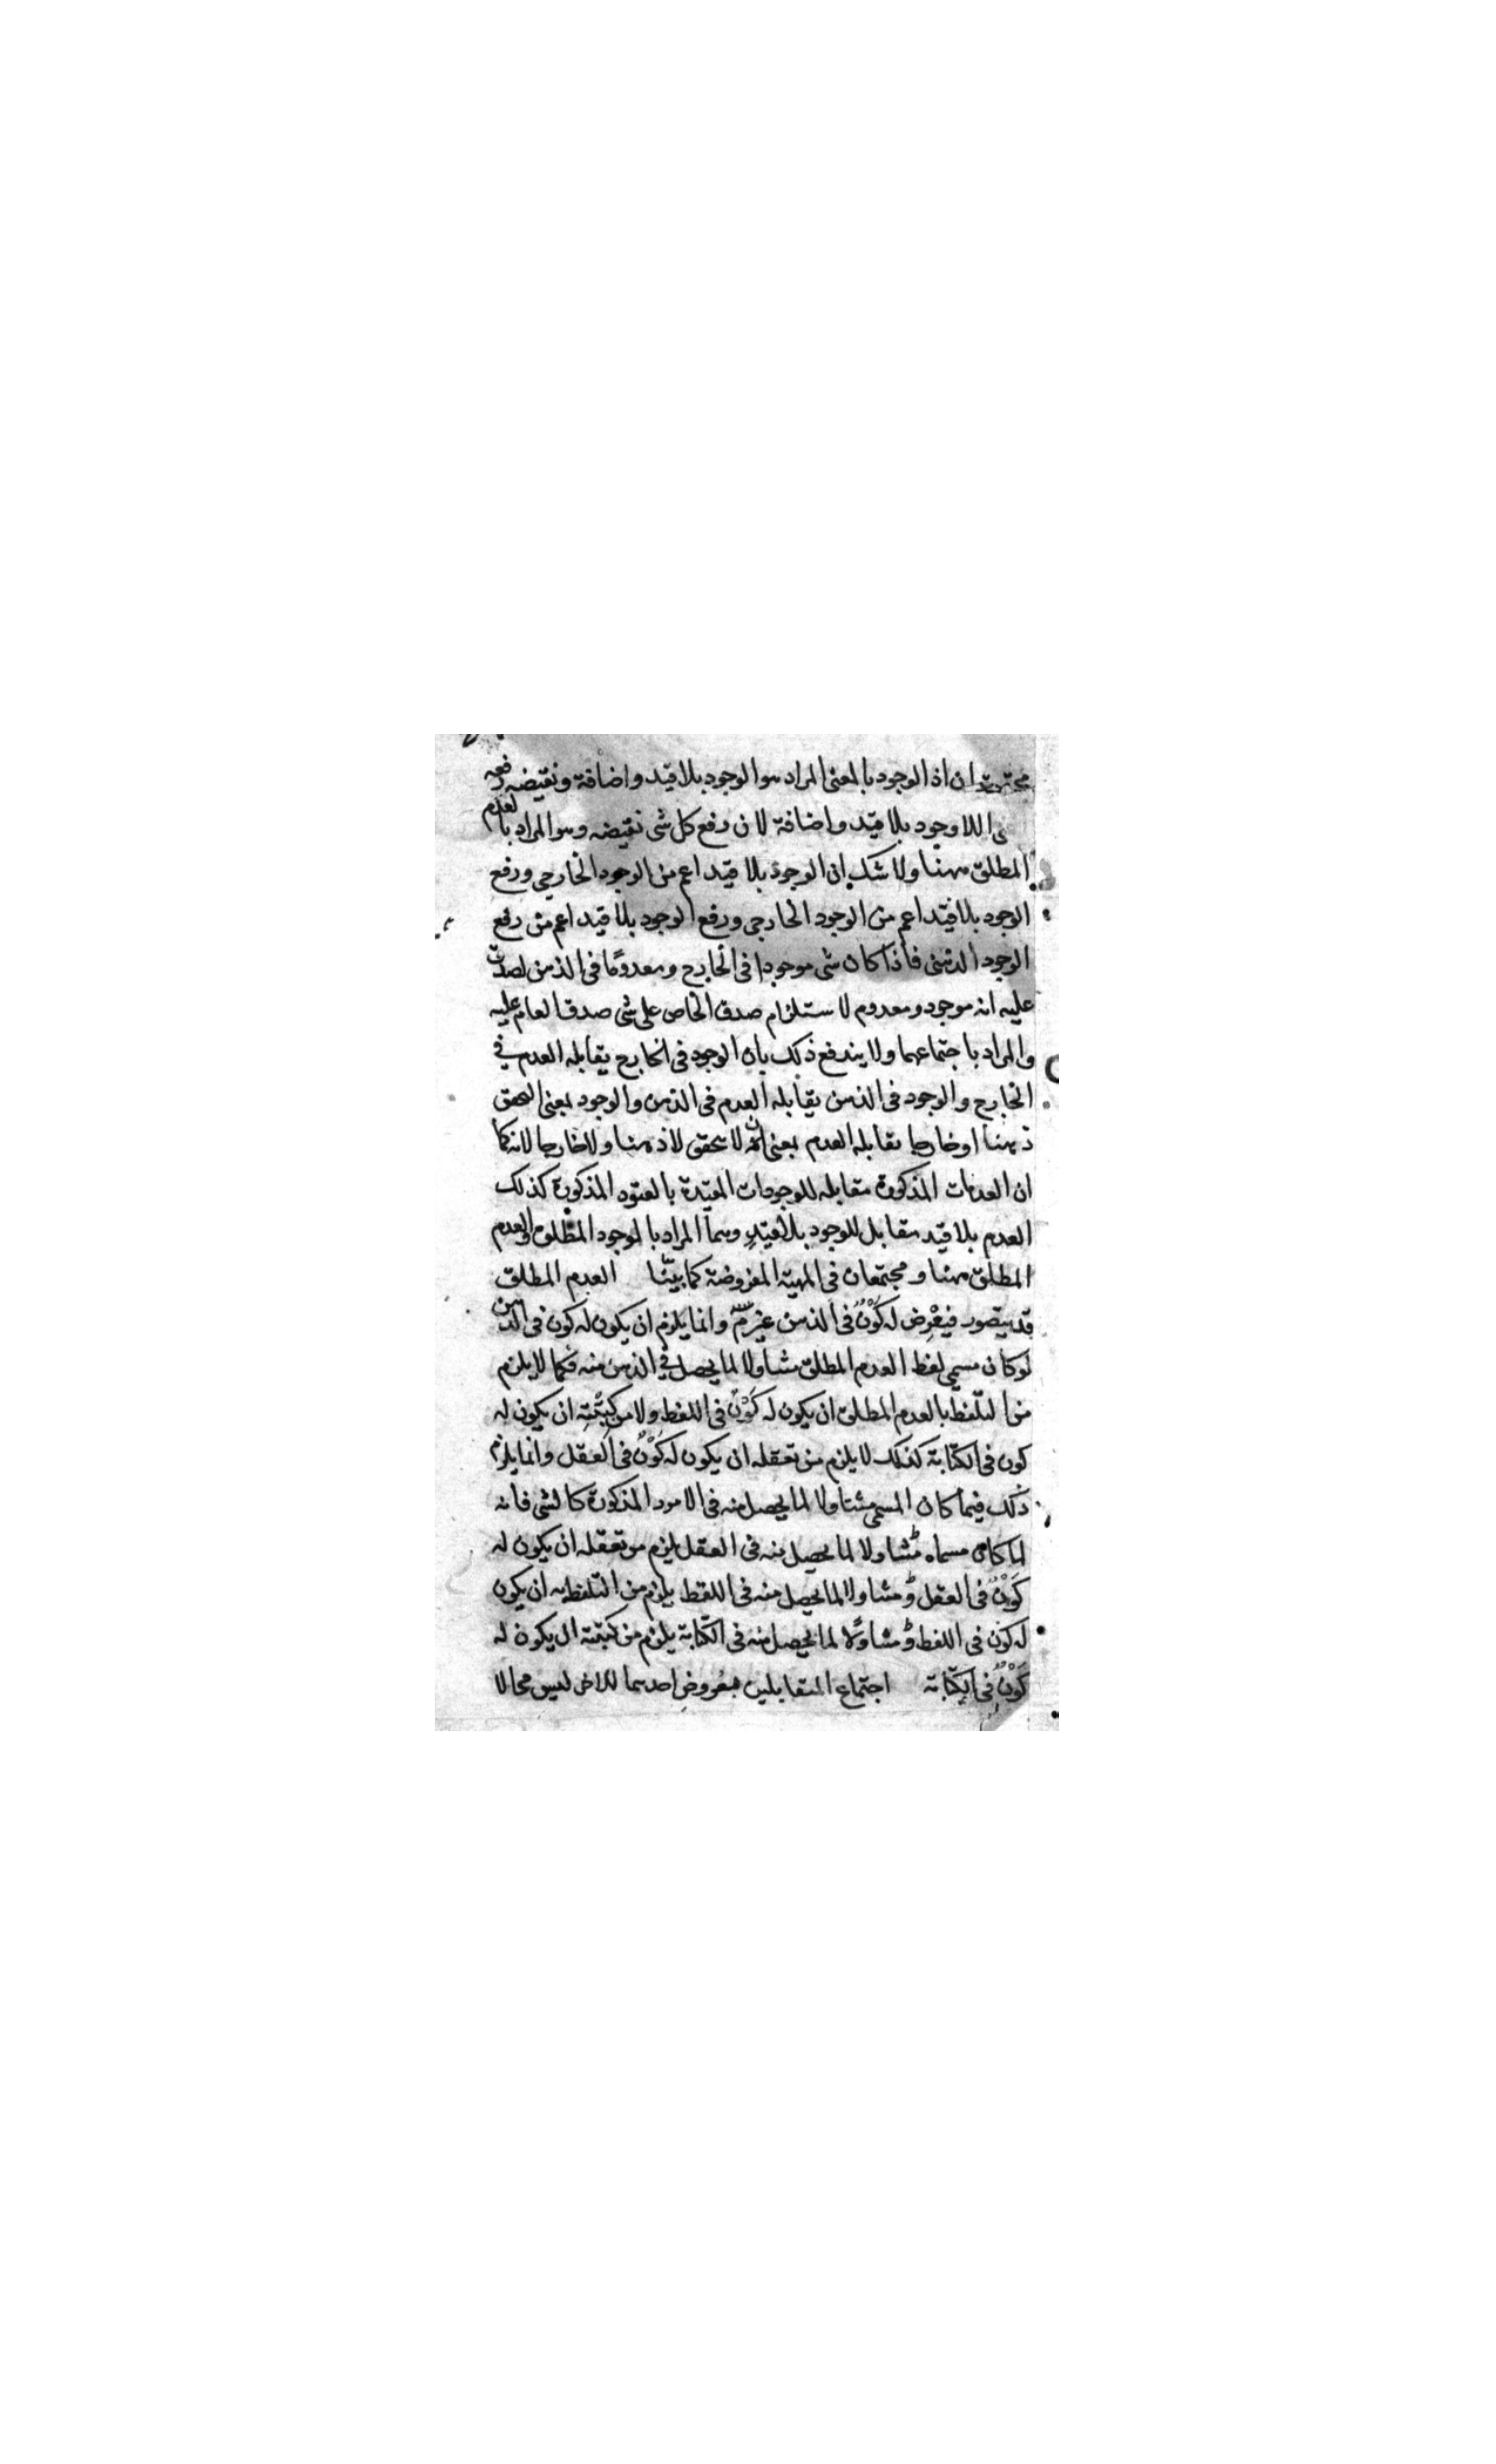 ان اذ الوجود بالمعنى المراد هو الوجود بلا قيد واضافة ونقيضه رفعه
اللاوجود بلا قيد واضافة لان رفع كل شى نقيضه وهو المراد بالعدم
المطلق ههنا ولا شك ان الوجود بلا قيد اعم من الوجود الخارجى ورفع
الوجود بلا قيد اعم من الوجود الخارجى ورفع الوجود بلا قيد اعم من رفع
الوجود الذهنى فاذا كان شى موجودا فى الخارج ومعدومًا فى الذهن لصدق
عليه انه موجود ومعدوم لاستلزام صدق الخاص على شى صدق العام عليه
والمراد باجتماعهما ولا يندفع ذلك بان الوجود فى الخارج يقابله العدم فى
الخارج والوجود فى الذهن يقابله العدم فى الذهن والوجود بمعنى التحقق
ذهنا او خارجا يقابله العدم بمعنى ان لا تحقق لا ذهنا ولا خارجا لانه كما
ان العدمات المذكورة مقابله للوجودات المقيدة بالقيود المذكورة كذلك
العدم بلا قيد مقابل للوجود بلا قيدٍ وهما المراد بالوجود المطلق والعدم
المطلق ههنا ومجتمعان فى المهية المفروضة كما بينّا العدم المطلق
قد يتصور فيعْرِض له كَوْنٌ فى الذهن غير مسلم وانما يلزم ان يكون له كون فى الذهن
لو كان مسمى لفظ العدم المطلق متناولا لما يحصل فى الذهن منه فكما لا يلزم
من التلّفظ بالعدم المطلق ان يكون له كَوْنٌ فى اللفظ ولا من كِتْبَتِهِ ان يكون له
كون فى الكتابة كذلك لا يلزم من تعقله ان يكون له كَوْنٌ فى العقل وانما يلزم
ذلك فيما كان المسمى متناولا لما يحصل منه فى الامور المذكورة كالشى فانه
لما كان مسماه متناولا لما يحصل منه فى العقل يلزم من تعقله ان يكون له
كَوْنٌ فى العقل ومتناولا لما يحصل منه فى اللفظ يلزم من التلفظ به ان يكون
له كون فى اللفظ ومتناولًا لما يحصل منه فى الكتابة يلزم من كتبته ان يكون له
كَوْنٌ فى الكتابة اجتماع المتقابلين بعروض احدهما للاخر ليس محالا